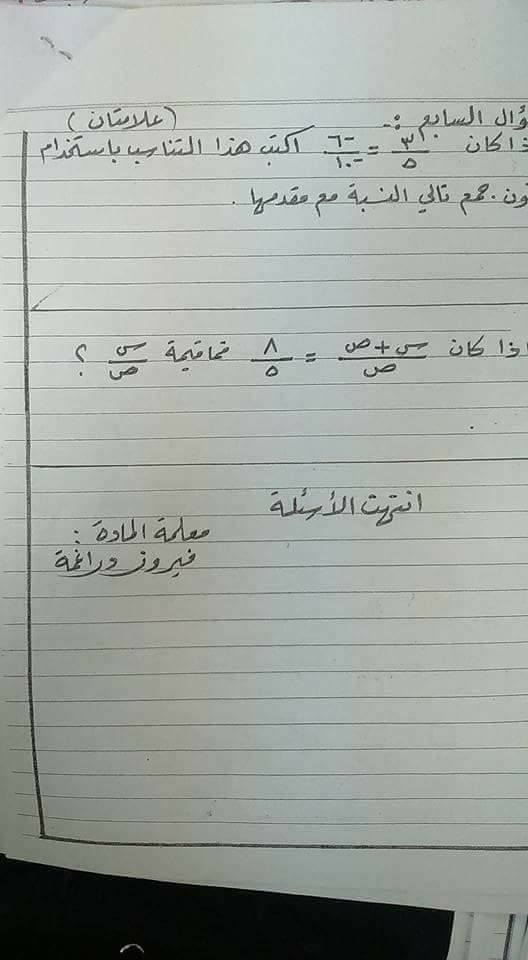 ؤال السابع :- (علامتان)
ذا كان ٣/٥ = -٦/-١٠ اكتب هذا التناسب باستخدام
ون. جمع تالي النسبة مع مقدمها .
اذا كان س + ص/ص = ٨/٥ فما قيمة س/ص ؟
انتهت الأسئلة
معلمة المادة :
فيروز دراغمة